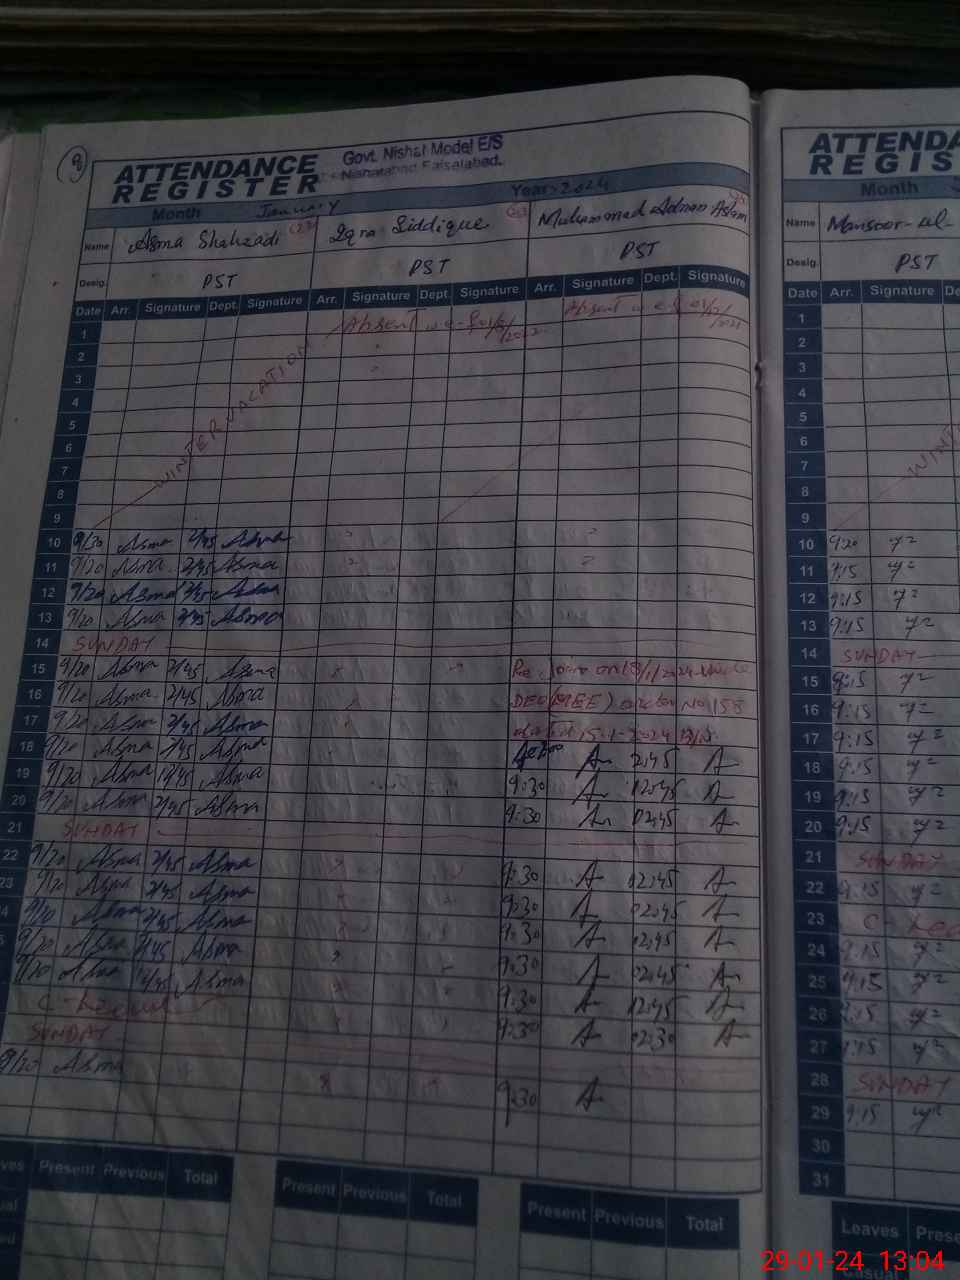 8
ATTENDANCE REGISTER
Govt. Nishat Model E/S
Nishatabad Faisalabad.
Month January Year 2024
Name Asma Shahzadi Iqra Siddique Muhammad Adnan Aslam
Desig. PST PST PST
Date Arr. Signature Dept. Signature Arr. Signature Dept. Signature Arr. Signature Dept. Signature
1 Absent w.e.f Absent w.e.f
2
3
4
5
6
7
8
9
WINTER VACATION
10 9/30 Asma 2/45 Asma
11 9/20 Asma 2/45 Asma
12 9/20 Asma 2/45 Asma
13 9/20 Asma 2/45 Asma
14 SUNDAY
15 9/20 Asma 2/45 Asma Re. Join on 18/1/2024
16 9/20 Asma 2/45 Asma DEO(MEE) order No 158
17 9/20 Asma 2/45 Asma dated 15-1-2024
18 9/20 Asma 2/45 Asma A 2:45 A
19 9/20 Asma 12/45 Asma 9:30 A 12:45 A
20 9/20 Asma 2/45 Asma 9:30 A 02:45 A
21 SUNDAY
22 9/20 Asma 2/45 Asma 9:30 A 02:45 A
23 9/20 Asma 2/45 Asma 9:30 A 02:45 A
4 9/20 Asma 2/45 Asma 9:30 A 02:45 A
9/20 Asma 2/45 Asma 9:30 A 02:45 A
9/20 Asma 12/45 Asma 9:30 A 12:45 A
C-Leave 9:30 A 02:30 A
SUNDAY
9/20 Asma 9:30 A
Present Previous Total Present Previous Total Present Previous Total
ATTENDANCE
REGISTER
Month
Name Mansoor-ul-
Desig. PST
Date Arr. Signature
1
2
3
4
5
6
7
8
9
10 9:20
11 9:15
12 9:15
13 9:15
14 SUNDAY
15 9:15
16 9:15
17 9:15
18 9:15
19 9:15
20 9:15
21 SUNDAY
22 9:15
23 C-Lea
24 9:15
25 9:15
26 9:15
27 9:15
28 SUNDAY
29 9:15
30
31
Leaves Prese
Casual
29-01-24 13:04